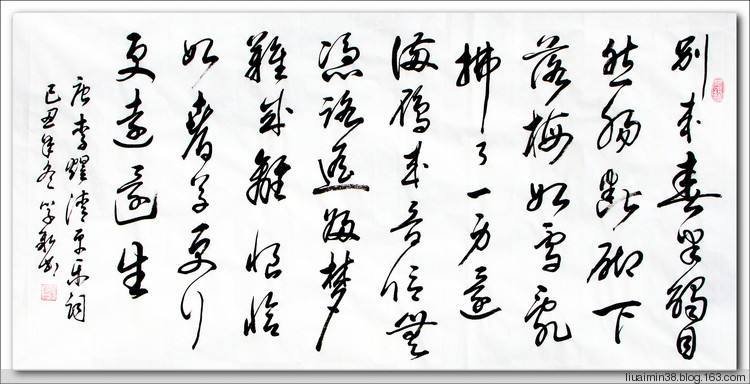 别来春半觸目
愁肠斷砌下
落梅如雪亂
拂了一身還
滿雁来音信無
憑路遥歸夢
難成離恨恰
如春草更行
更遠還生
唐李煜清平乐詞
己丑年冬
liuaimin38.blog.163.com